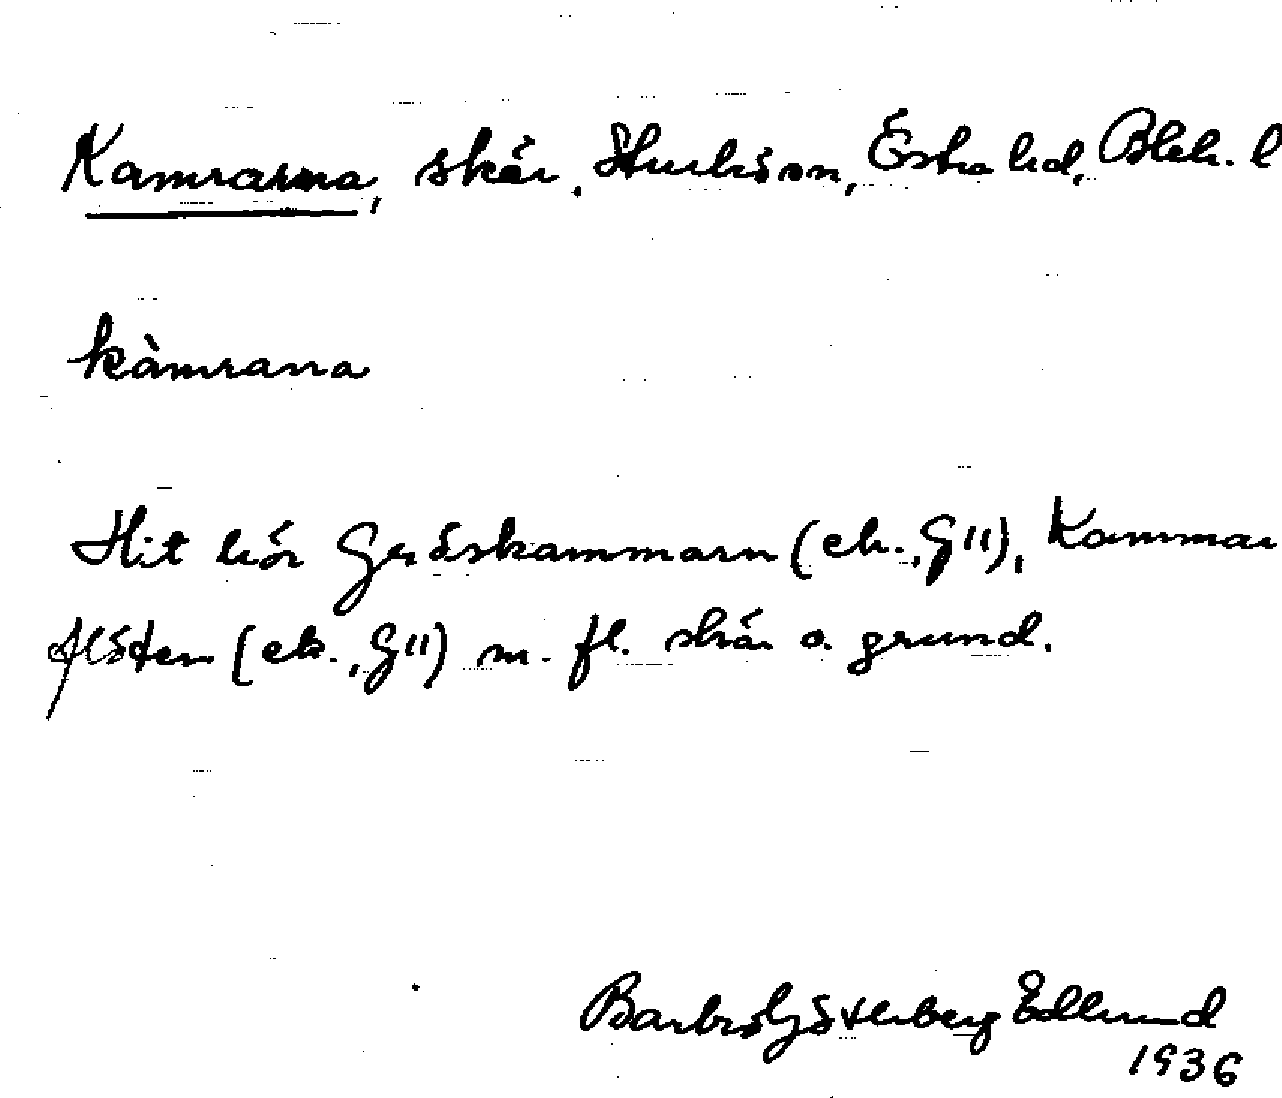 Kamrarna, skär, Sturkön, Östra hd, Blek. l
kàmrarna
Hit hör Gråskammarn (ek., G11), Kammar
flöten (ek., G11) m. fl. skär o. grund.
Barbro Götherberg Edlund
1936